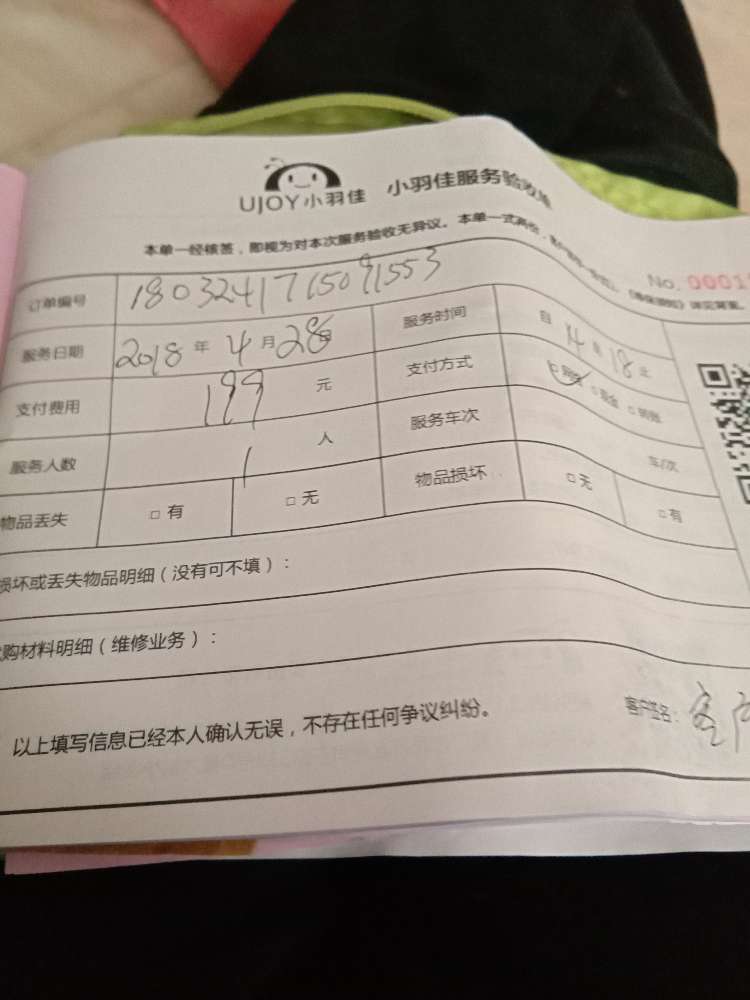 UJOY小羽佳 小羽佳服务验收单
本单一经核签，即视为对本次服务验收无异议。本单一式两份，
No. 0001
订单编号 1803241715091553
服务日期 2018 年 4 月 28 日 服务时间 自 14 至 18 止
支付费用 199 元 支付方式 □ □ 现金 □ 转账
服务人数 1 人 服务车次 车/次
物品丢失 □ 有 □ 无 物品损坏 □ 无 □ 有
损坏或丢失物品明细（没有可不填）：
购材料明细（维修业务）：
以上填写信息已经本人确认无误，不存在任何争议纠纷。 客户签名：